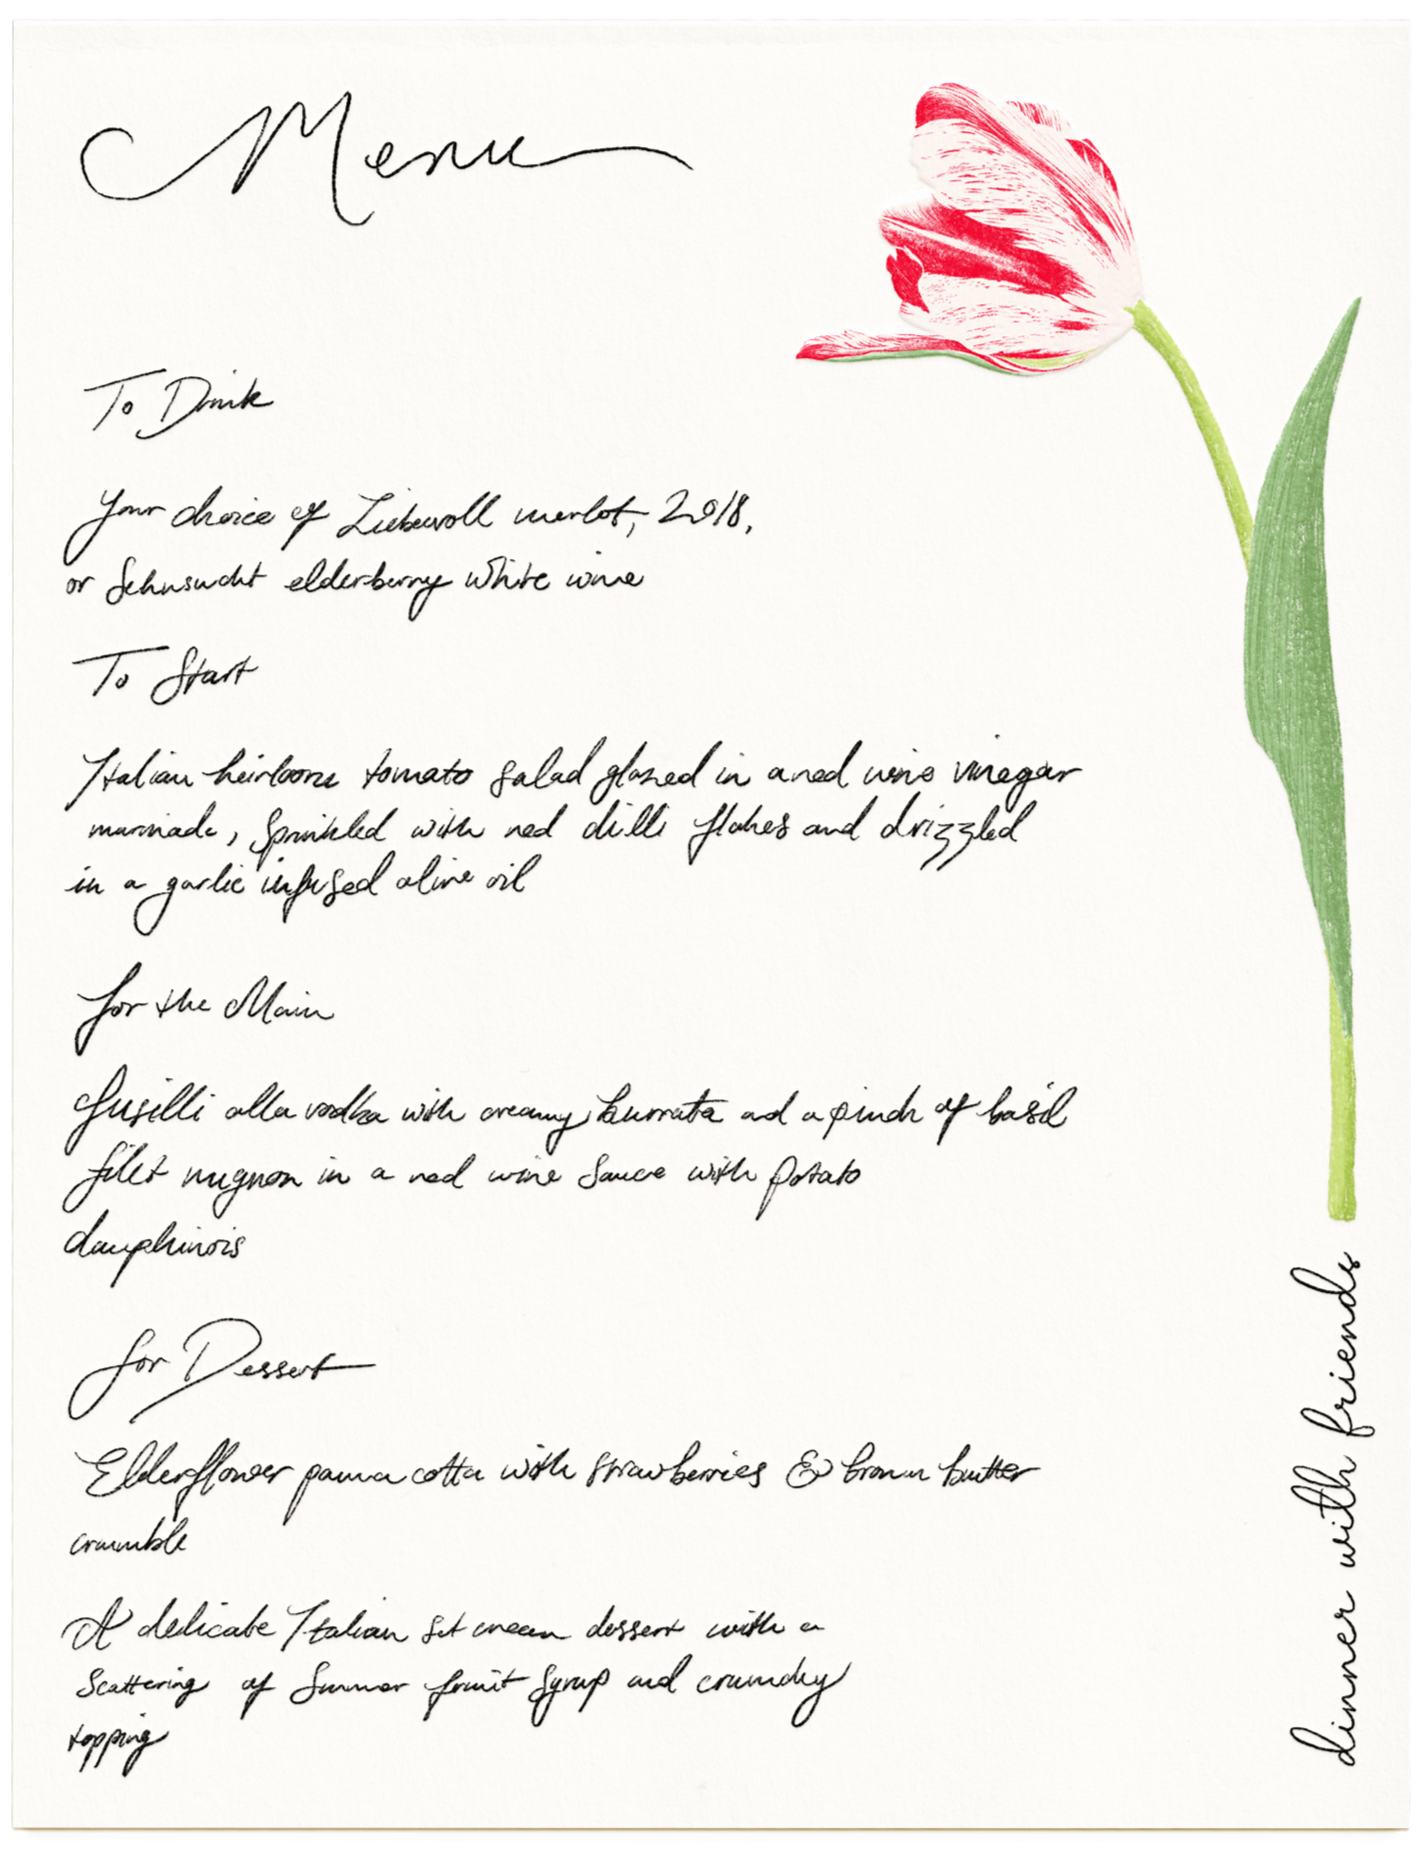 Menu
To Drink
Your choice of Liebevoll merlot, 2018,
or Sehnsucht elderberry white wine
To Start
Italian heirloom tomato salad glazed in a red wine vinegar
marinade, sprinkled with red chilli flakes and drizzled
in a garlic infused olive oil
for the Main
fusilli alla vodka with creamy burrata and a pinch of basil
filet mignon in a red wine sauce with potato
dauphinois
for Dessert
Elderflower panna cotta with strawberries & brown butter
crumble
A delicate Italian set cream dessert with a
scattering of summer fruit syrup and crunchy
topping
dinner with friends